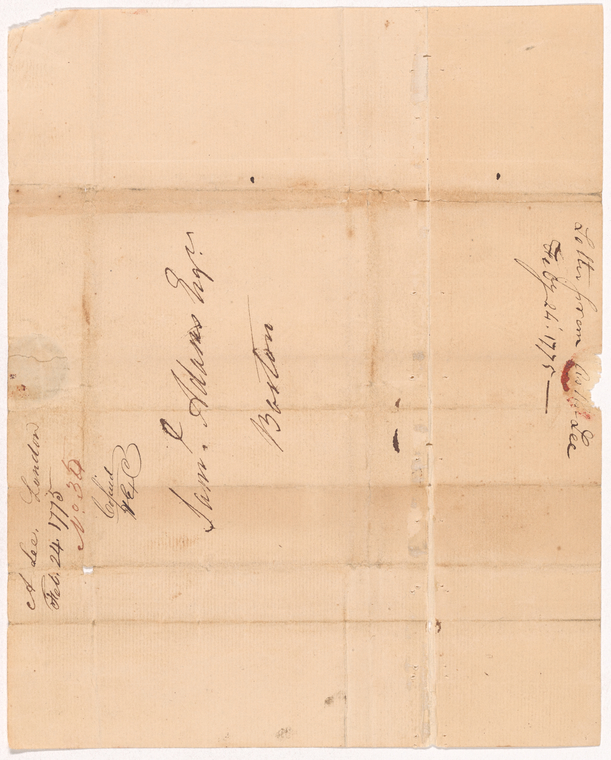 Saml. Adams Esqr.
Boston
A Lee. London
Feb. 24. 1775
No 34
Copied
Letter from Lee
Feby 24. 1775 —